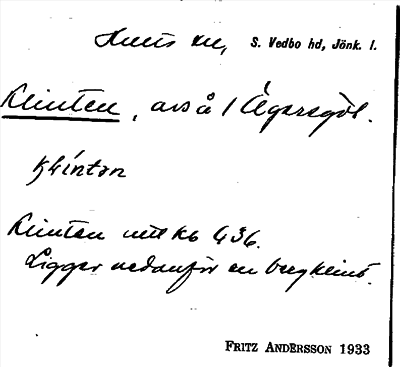 Hults sn, S. Vedbo hd, Jönk. l.
Klinten, avs å 1 Ägersgöl.
klintən
Klinten utt kb 436.
Ligger nedanför en bergklint.
FRITZ ANDERSSON 1933